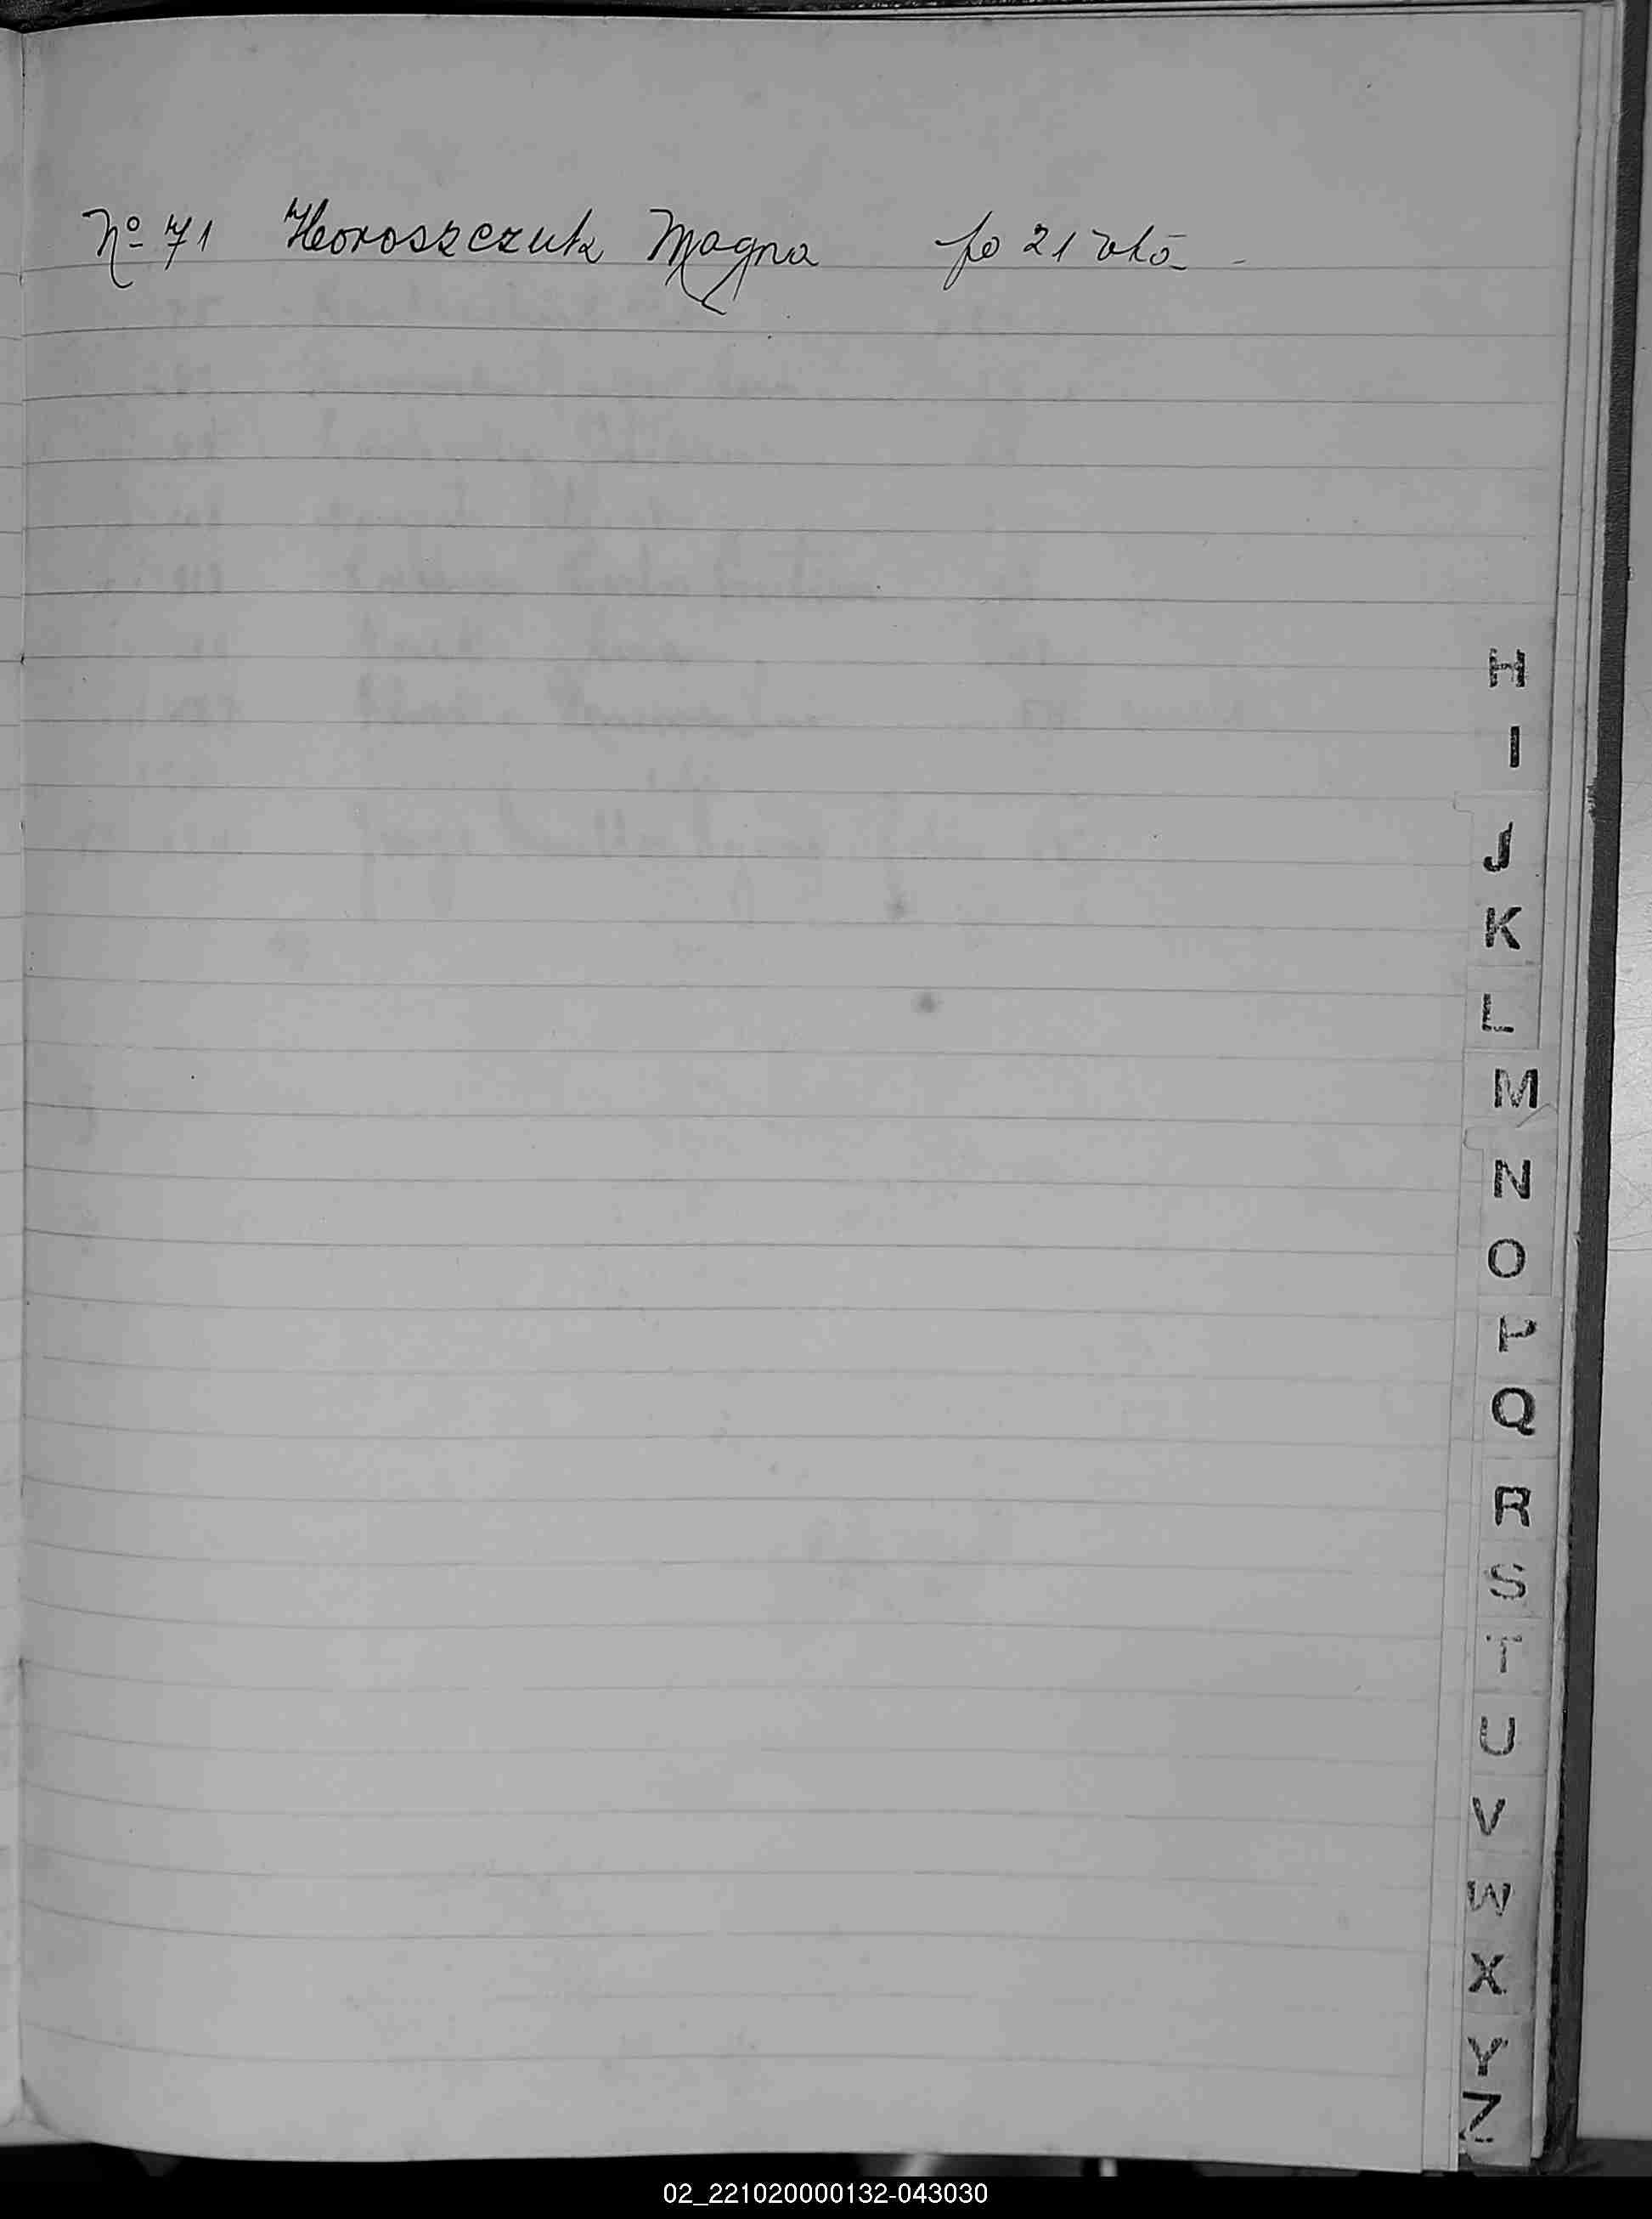 Nº 71 Horoszczuk Magna fo 21 vtō
H
I
J
K
L
M
N
O
P
Q
R
S
T
U
V
W
X
Y
Z
02_221020000132-043030